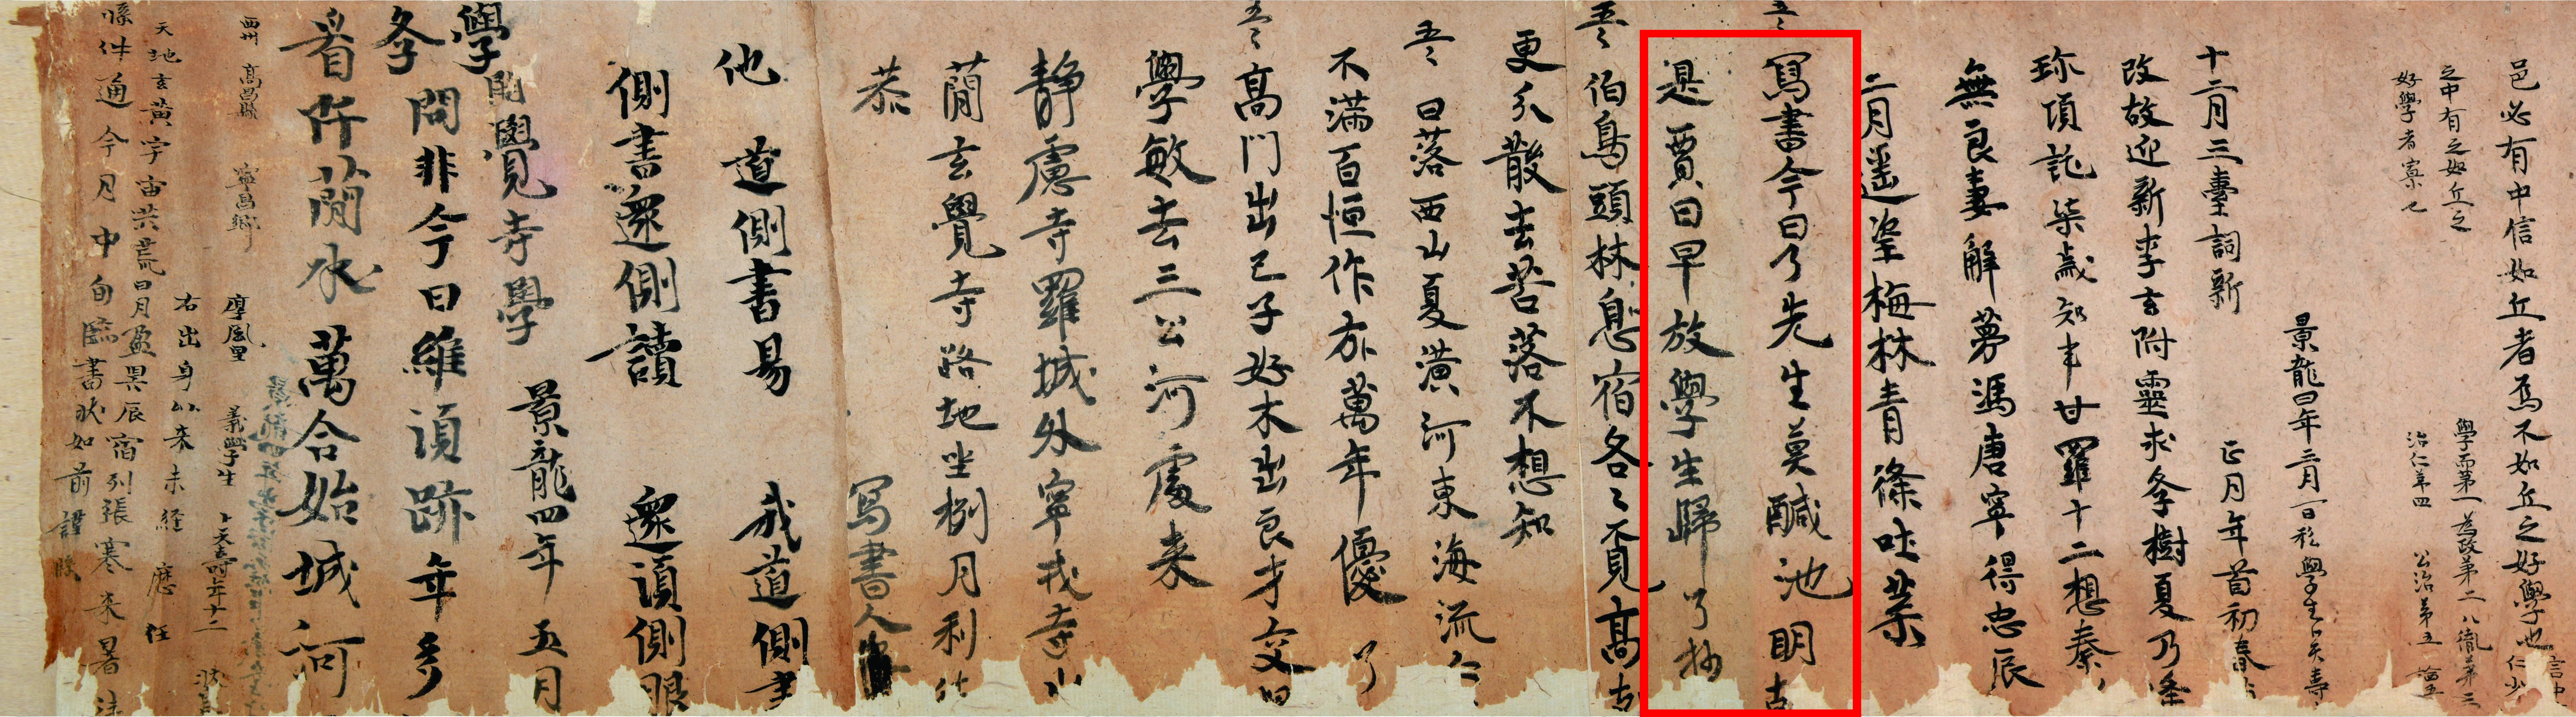 邑必有中信如丘者焉不如丘之好學也
之中有之如丘之
好學者寡七
言中
仁少
學而第一為政第二八佾第三
治仁第四 公治第五
景龍四年三月一日私學生卜天壽
十二月三臺詞新 正月年首初春
改故迎新李玄附靈求學樹夏乃逢
珎項託柒歲知事甘羅十二想秦
無良妻解夢馮唐寧得忠辰
二月遥望梅林青條吐葉
五言
寫書今日了先生莫醎池明
是賈日早放學生歸 了抄
五言
伯鳥頭林息宿各各覓高
更分散去苦落不想知
五言
日落西山夏潢河東海流
不滿百恒作亦萬年優 了
五言
高門出己子好木出良才交
學敏去三公河處来
靜慮寺羅城外寧戎寺
蕳玄覺寺路地坐捌月利
恭 寫書人
他 道側書易 我道側
側書還側讀 還須側眼
學開覺寺學 景龍四年五月
學問非今日維須跡年多
看阡蕳水萬合始城河
西州 高昌縣 寧昌鄉 厚風里 義學生 卜天壽年十二
右出身以来未経 歷任
天地玄黃宇宙洪荒日月盈昃辰宿列張寒来暑
條件通今月中旬臨書狀如前謹